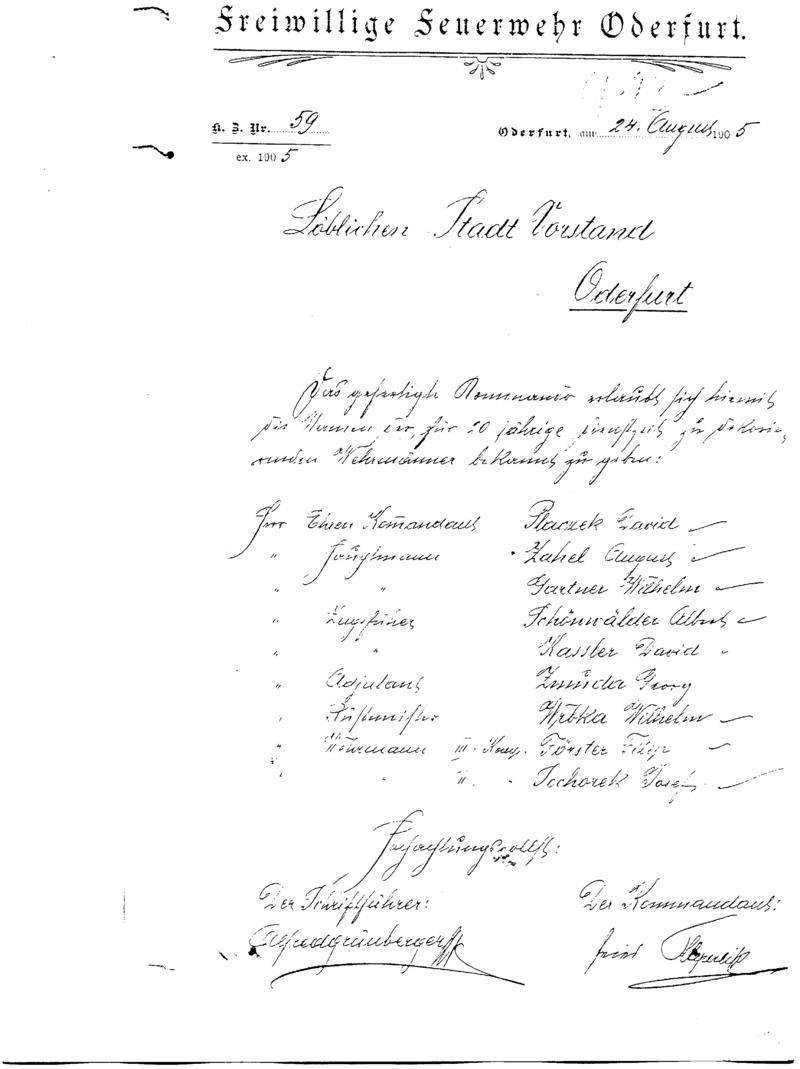 Freiwillige Feuerwehr Oderfurt.
K. Z. Nr. 59
Oderfurt, am 24. August 1905
ex. 1905
Löblichen Stadt Vorstand
Oderfurt
Das gefertigte Kommando erlaubt sich hiemit
die Namen der, für 20 jährige Dienstzeit zu dekorie-
renden Wehrmänner bekannt zu geben:
Herr Ehren Komandant Placzek David
" Hauptmann Zahel August
" " Gartner Wilhelm
" Zugsführer Schönwälder Albert
" " Kassler David
" Adjutant Zmuda Georg
" Rüstmeister Wrbka Wilhelm
" Wehrmann III. Komp. Förster Filip
" " II. " Sochorek Josef
Hochachtungsvollst:
Der Schriftführer: Der Kommandant:
Alfred Grünberger